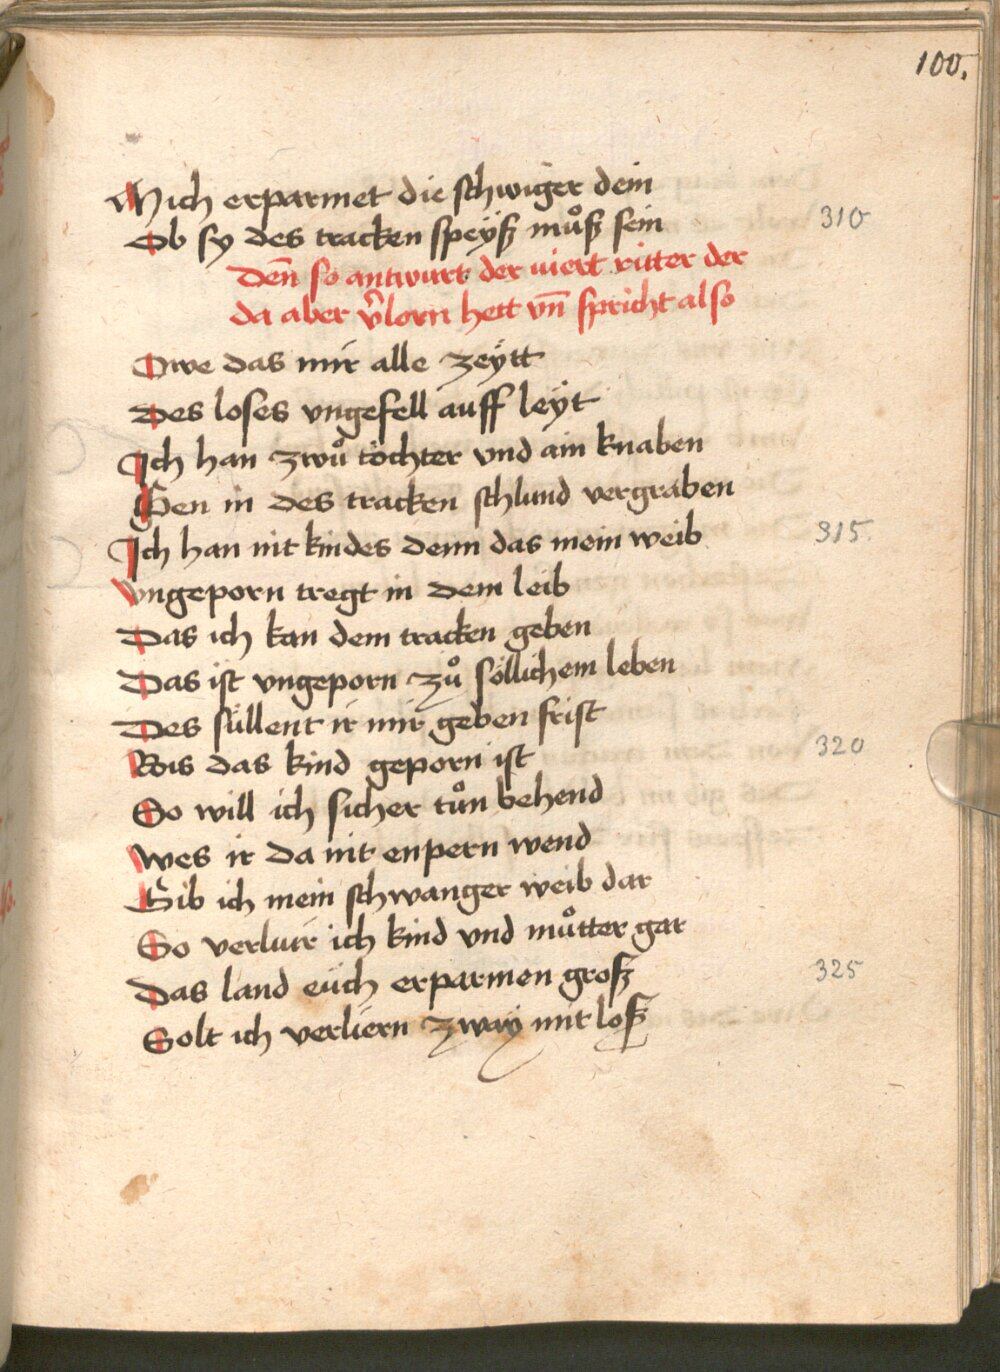 100.
Mich erparmet die schwiger dein
Ob sy des tracken speÿß můß sein
310
Den̄ so antwurt der viert ritter der
da aber v̄lorn hett vn̄ spricht also
Owe das mir alle zeÿtt
Des loses vngefell auff leÿt
Ich han zwů töchter vnd ain knaben
Gen in des tracken schlund vergraben
Ich han nit kindes denn das mein weib
315.
vngeporn tregt in dem leib
Das ich kan dem tracken geben
Das ist vngeporn zů söllichem leben
Des süllent ir mir geben frist
Bis das kind geporn ist
320
So will ich sicher tůn behend
wes ir da nit enpern wend
Gib ich mein schwanger weib dar
So verlur ich kind vnd můtter gar
Das land eüch erparmen groß
325
Solt ich verliern zwaÿ mit loß